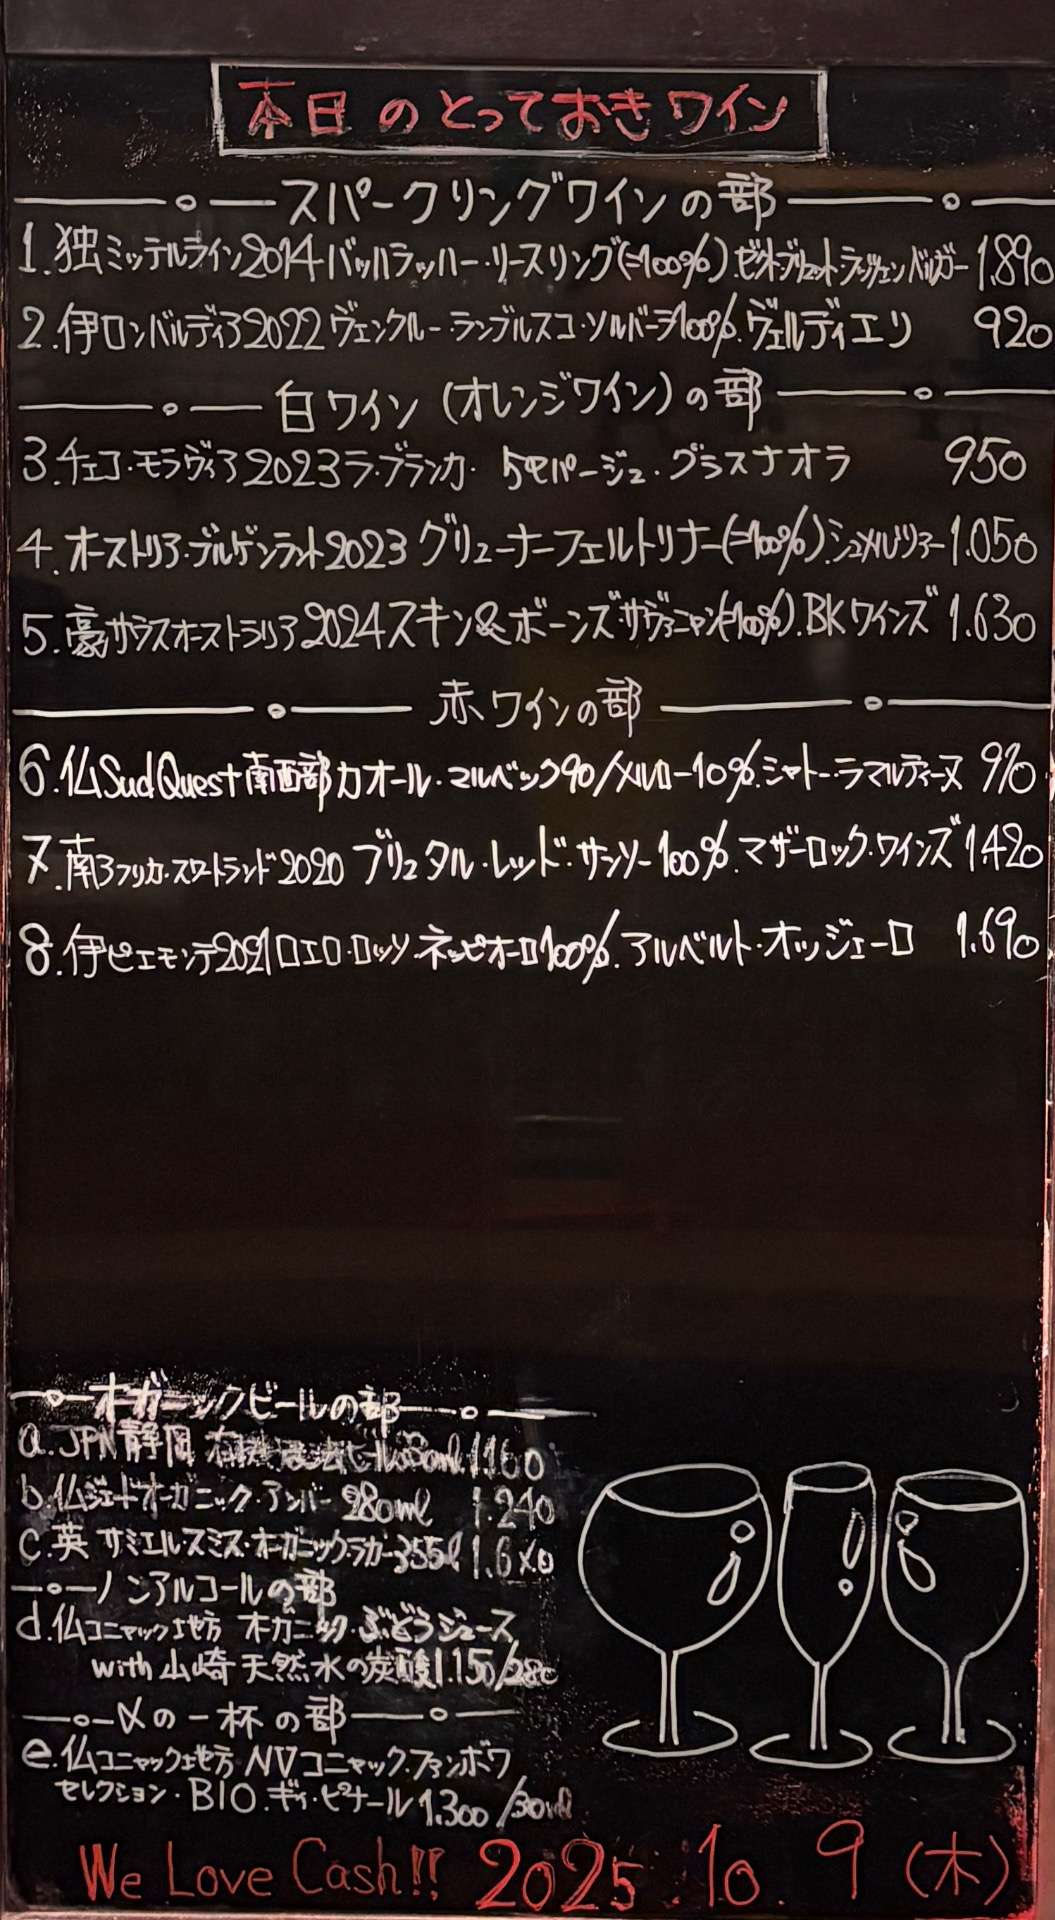 本日のとっておきワイン
スパークリングワインの部
1.独ミッテルライン2014バッハラッハー・リースリング(=100%).ゼクト・ブリュット・ラッツェンベルガー 1.890
2.伊ロンバルディア2022ヴェンクルー ランブルスコ・ソルバーラ100%.ヴェルディエリ 920
白ワイン(オレンジワイン)の部
3.チェコ・モラヴィア2023ラ・ブランカ・5セパージュ・グラスナオラ 950
4.オーストリア・ブルゲンラント2023グリューナーフェルトリナー(=100%).シュメルツァー 1.050
5.豪サウスオーストラリア2024スキン&ボーンズ・サヴァニャン(=100%).BKワインズ 1.630
赤ワインの部
6.仏SudQuest南西部カオール・マルベック90/メルロー10%.シャトー・ラマルティーヌ
7.南アフリカ・スワートランド2020 ブリュタル・レッド・サンソー100%.マザーロック・ワインズ 1.420
8.伊ピエモンテ2021ロエロ・ロッソ・ネッビオーロ100%.アルベルト・オッジェーロ 1.690
オーガニックビールの部
a.JPN静岡 1.160
b.仏ジェードオーガニック・アンバー 280ml 1.240
c.英 サミエル・スミス・オーガニック・ラガー355
ノンアルコールの部
d.仏コニャック地方 オーガニック・ぶどうジュース
with山崎天然水の炭酸 1.150/280
〆の一杯の部
e.仏コニャック地方 NVコニャックファンボワ
セレクション・BIO.ギィ・ピナール 1.300/30ml
We Love Cash!! 2025.10.9(木)